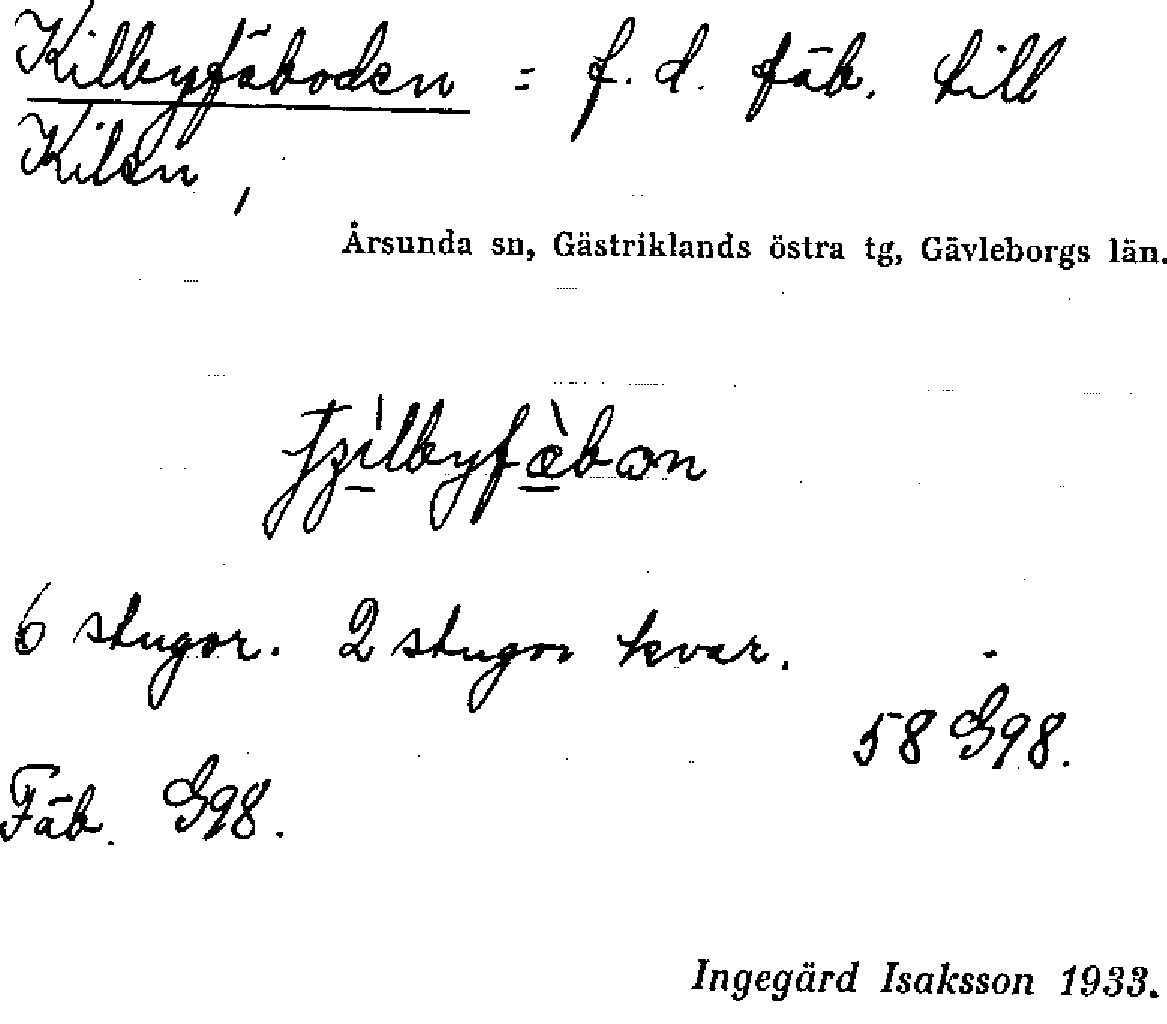 Kilbyfäboden = f. d. fäb. till
Kilen,
Årsunda sn, Gästriklands östra tg, Gävleborgs län.
6 stugor. 2 stugor kvar.
58 G98.
Fäb. G98.
Ingegärd Isaksson 1933.